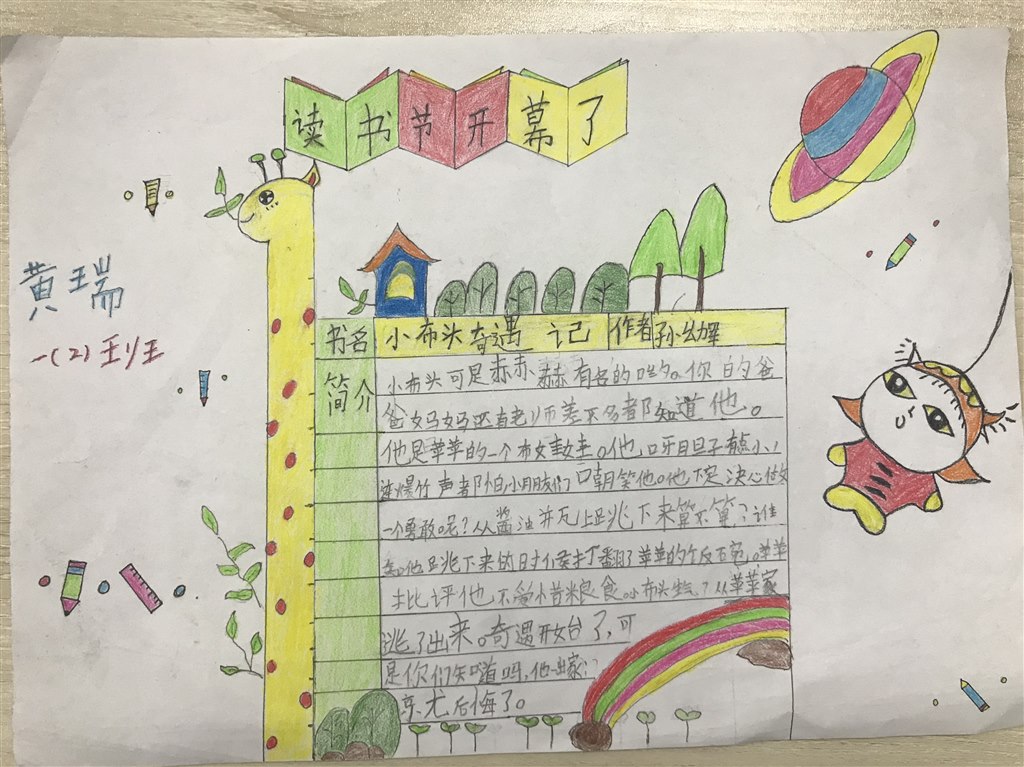 读书节开幕了
黄瑞
一(2)
书名 小布头奇遇记 作者 孙幼军
简介 小布头可是赫赫有名的哟。你的爸
爸妈妈还有老师差不多都知道他。
他是苹苹的一个布娃娃。他呀胆子有点小,
连爆竹声都怕小朋友们嘲笑他。他下定决心做
一个勇敢呢?从酱油瓶上跳下来算不算?谁
他跳下来的时候打翻了苹苹的饭碗。苹苹
批评他不爱惜粮食。小布头 从苹苹家
逃了出来。奇遇开始了,可
是你们知道吗,他一出家
后悔了。